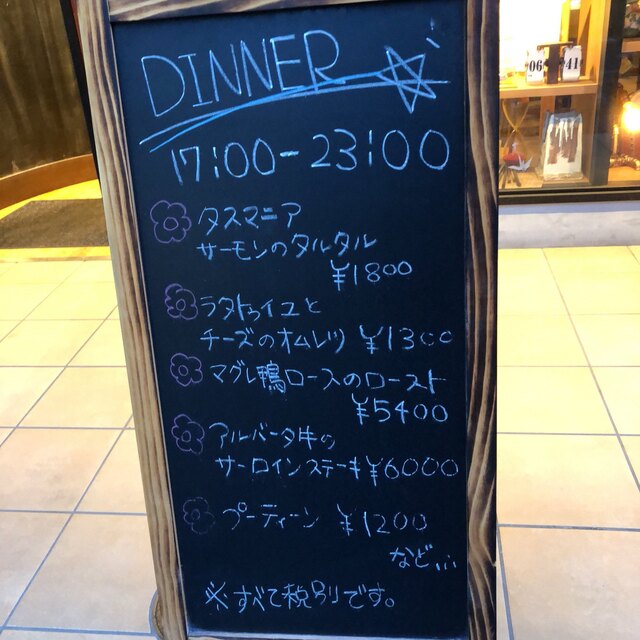 DINNER
17:00-23:00
タスマニア
サーモンのタルタル
¥1800
ラタトゥイユと
チーズのオムレツ ¥1300
マグレ鴨ロースのロースト
¥5400
アルバータ牛の
サーロインステーキ ¥6000
プーティーン ¥1200
など…
※すべて税別です。
06 41